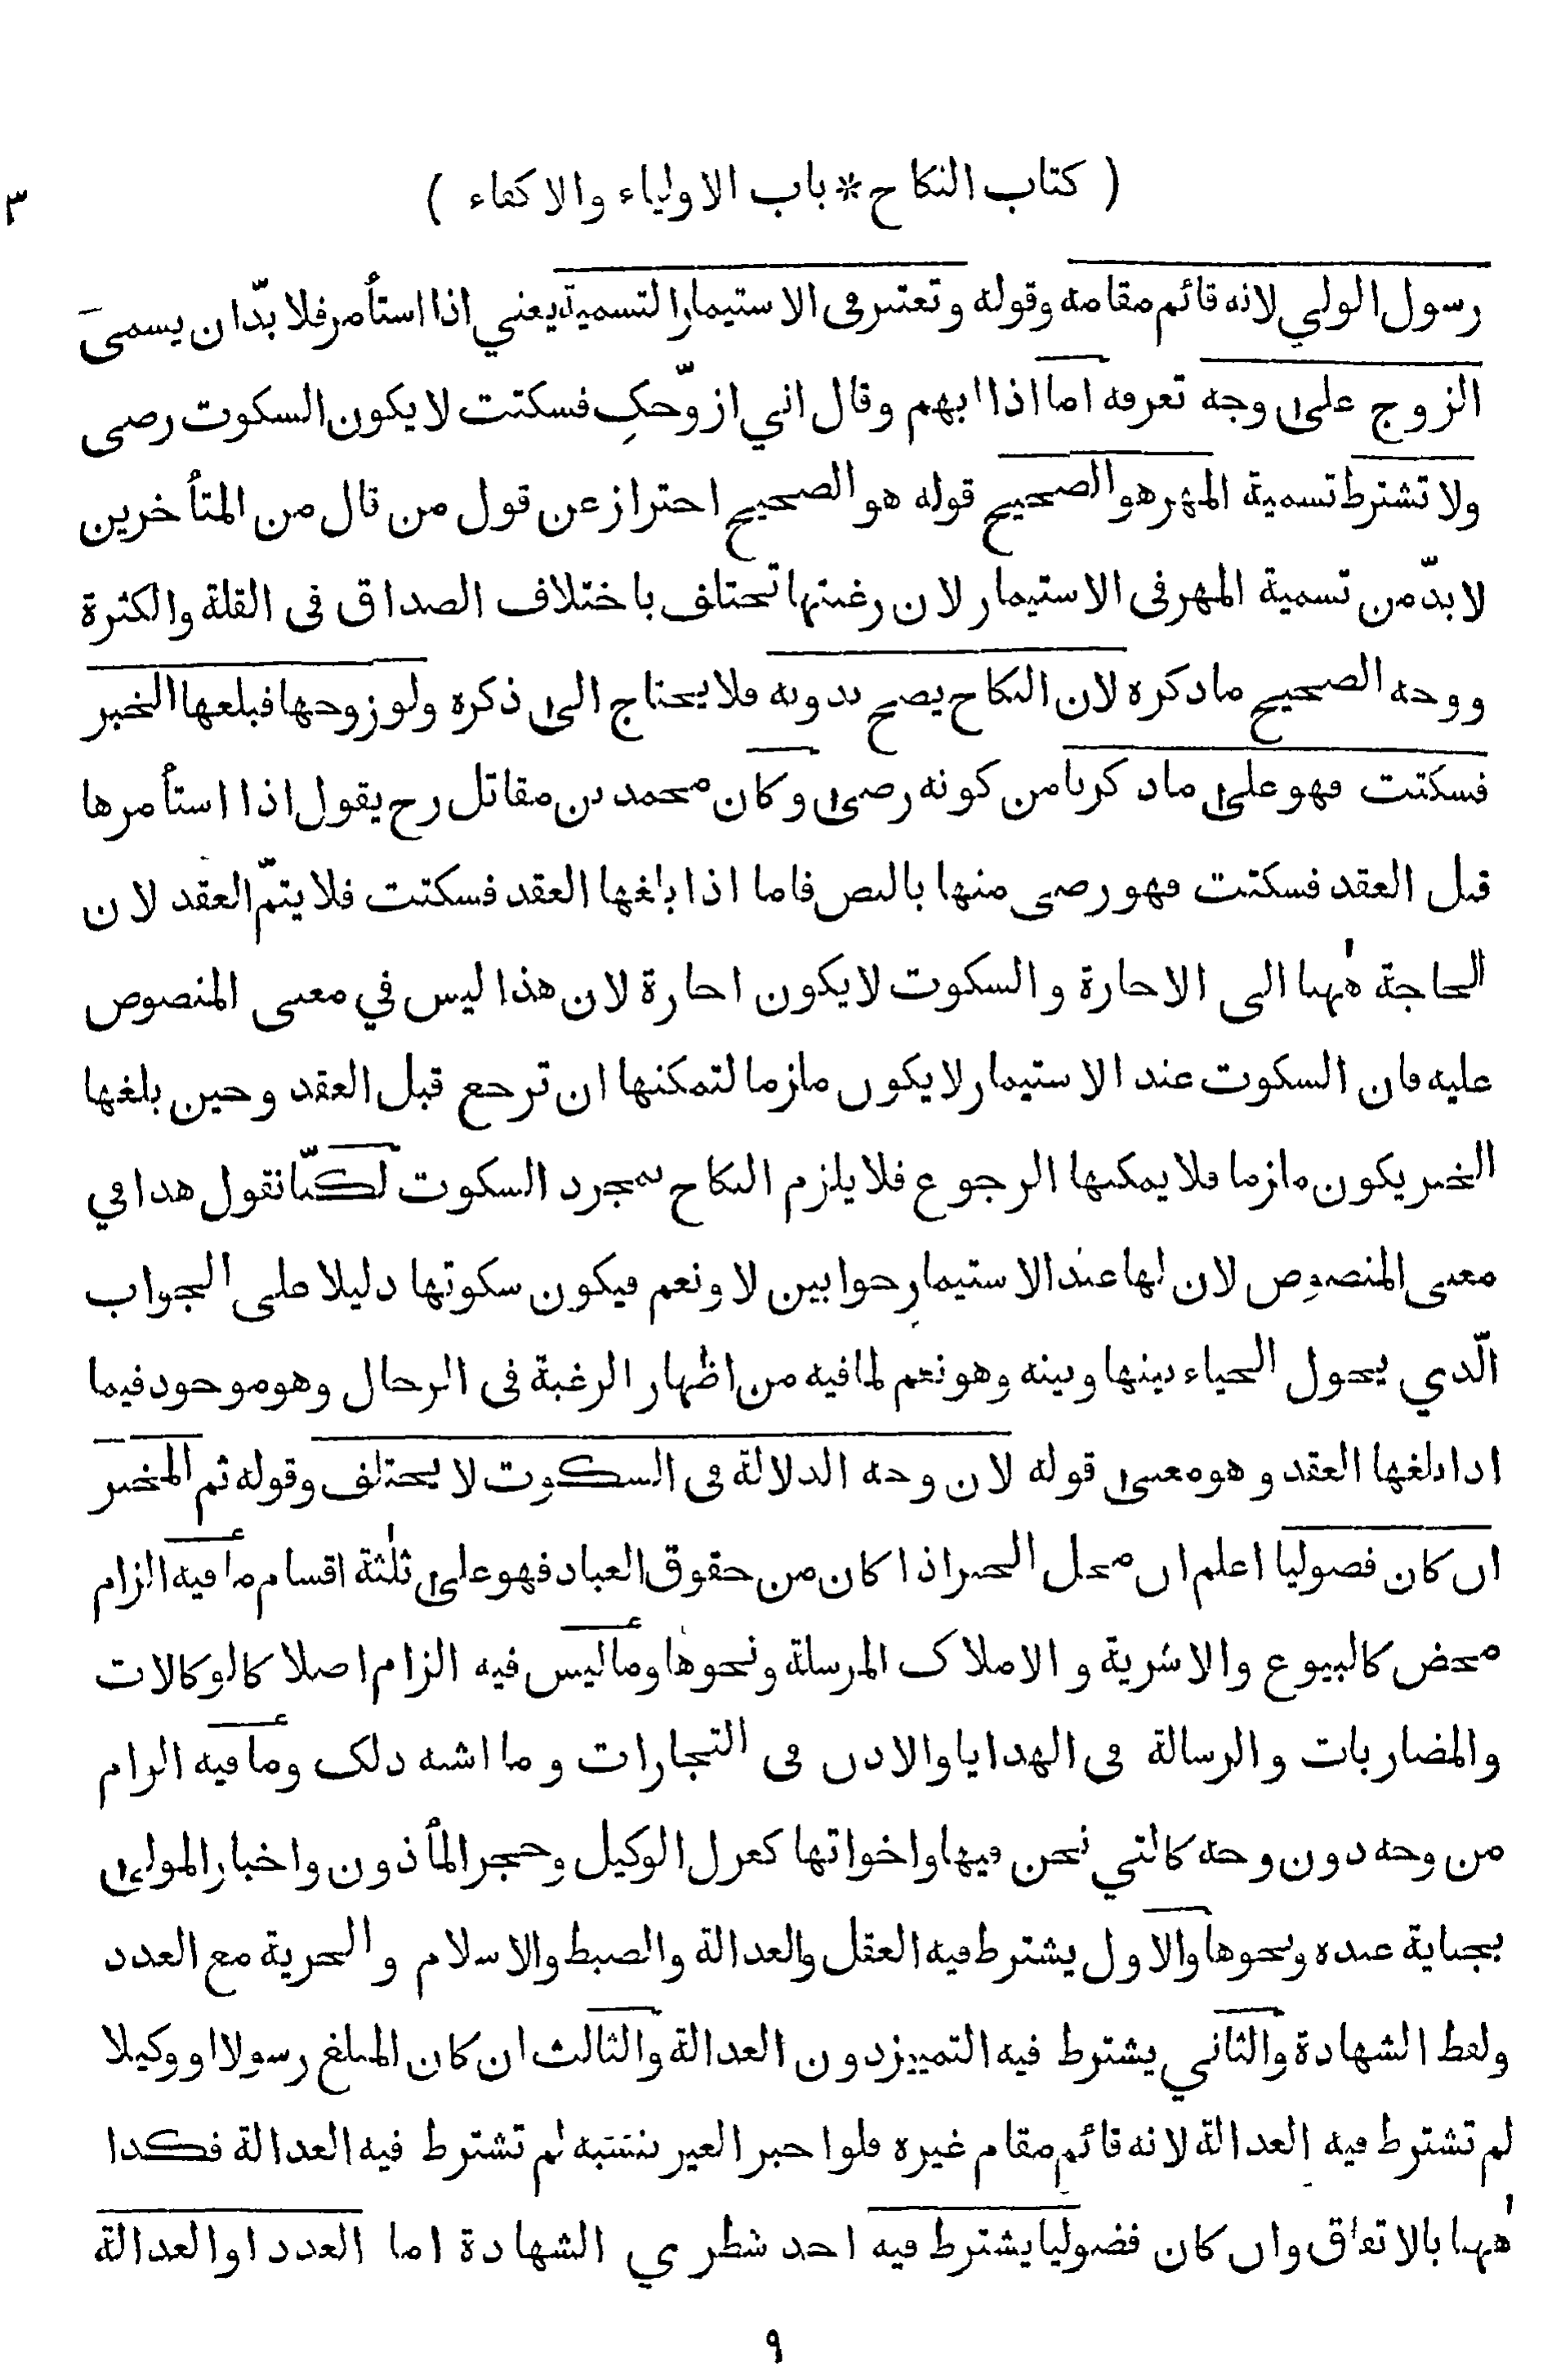 ( كتاب النكاح * باب الاولياء والاكفاء )
٣
رسول الولي لانه قائم مقامه وقوله وتعتبر في الاستيمار التسمية يعني اذا استأمر فلا بدّ ان يسمى
الزوج على وجه تعرفه اما اذا ابهم وقال اني ازوّجكِ فسكتت لا يكون السكوت رضى
ولا تشترط تسمية المهر هو الصحيح قوله هو الصحيح احتراز عن قول من قال من المتأخرين
لا بدّ من تسمية المهر في الاستيمار لان رغبتها تختلف باختلاف الصداق في القلة والكثرة
ووجه الصحيح ما ذكره لان النكاح يصح بدونه فلا يحتاج الى ذكره ولو زوجها فبلغها الخبر
فسكتت فهو على ما ذكرنا من كونه رضى وكان محمد بن مقاتل رح يقول اذا استأمرها
قبل العقد فسكتت فهو رضى منها بالنص فاما اذا بلغها العقد فسكتت فلا يتمّ العقد لان
الحاجة ههنا الى الاجازة والسكوت لا يكون اجازة لان هذا ليس في معنى المنصوص
عليه فان السكوت عند الاستيمار لا يكون ملزما لتمكنها ان ترجع قبل العقد وحين بلغها
الخبر يكون ملزما فلا يمكنها الرجوع فلا يلزم النكاح بمجرد السكوت لكنّا نقول هذا في
معنى المنصوص لان لها عند الاستيمار جوابين لا ونعم فيكون سكوتها دليلا على الجواب
الّذي يحول الحياء بينها وبينه وهو نعم لما فيه من اظهار الرغبة في الرجال وهو موجود فيما
اذا بلغها العقد وهو معنى قوله لان وجه الدلالة في السكوت لا يختلف وقوله ثم المخبر
ان كان فضوليا اعلم ان محل الخبر اذا كان من حقوق العباد فهو على ثلثة اقسام ما فيه الزام
محض كالبيوع والاشرية والاملاك المرسلة ونحوها وما ليس فيه الزام اصلا كالوكالات
والمضاربات والرسالة في الهدايا والاذن في التجارات وما اشبه ذلك وما فيه الزام
من وجه دون وجه كالتي نحن فيها واخواتها كعزل الوكيل وحجر المأذون واخبار المولى
بجناية عبده ونحوها والاول يشترط فيه العقل والعدالة والضبط والاسلام والحرية مع العدد
ولفظ الشهادة والثاني يشترط فيه التمييز دون العدالة والثالث ان كان المبلغ رسولا او وكيلا
لم تشترط فيه العدالة لانه قائم مقام غيره فلو اخبر الغير بنفسه لم تشترط فيه العدالة فكذا
ههنا بالاتفاق وان كان فضوليا يشترط فيه احد شطري الشهادة اما العدد او العدالة
٩